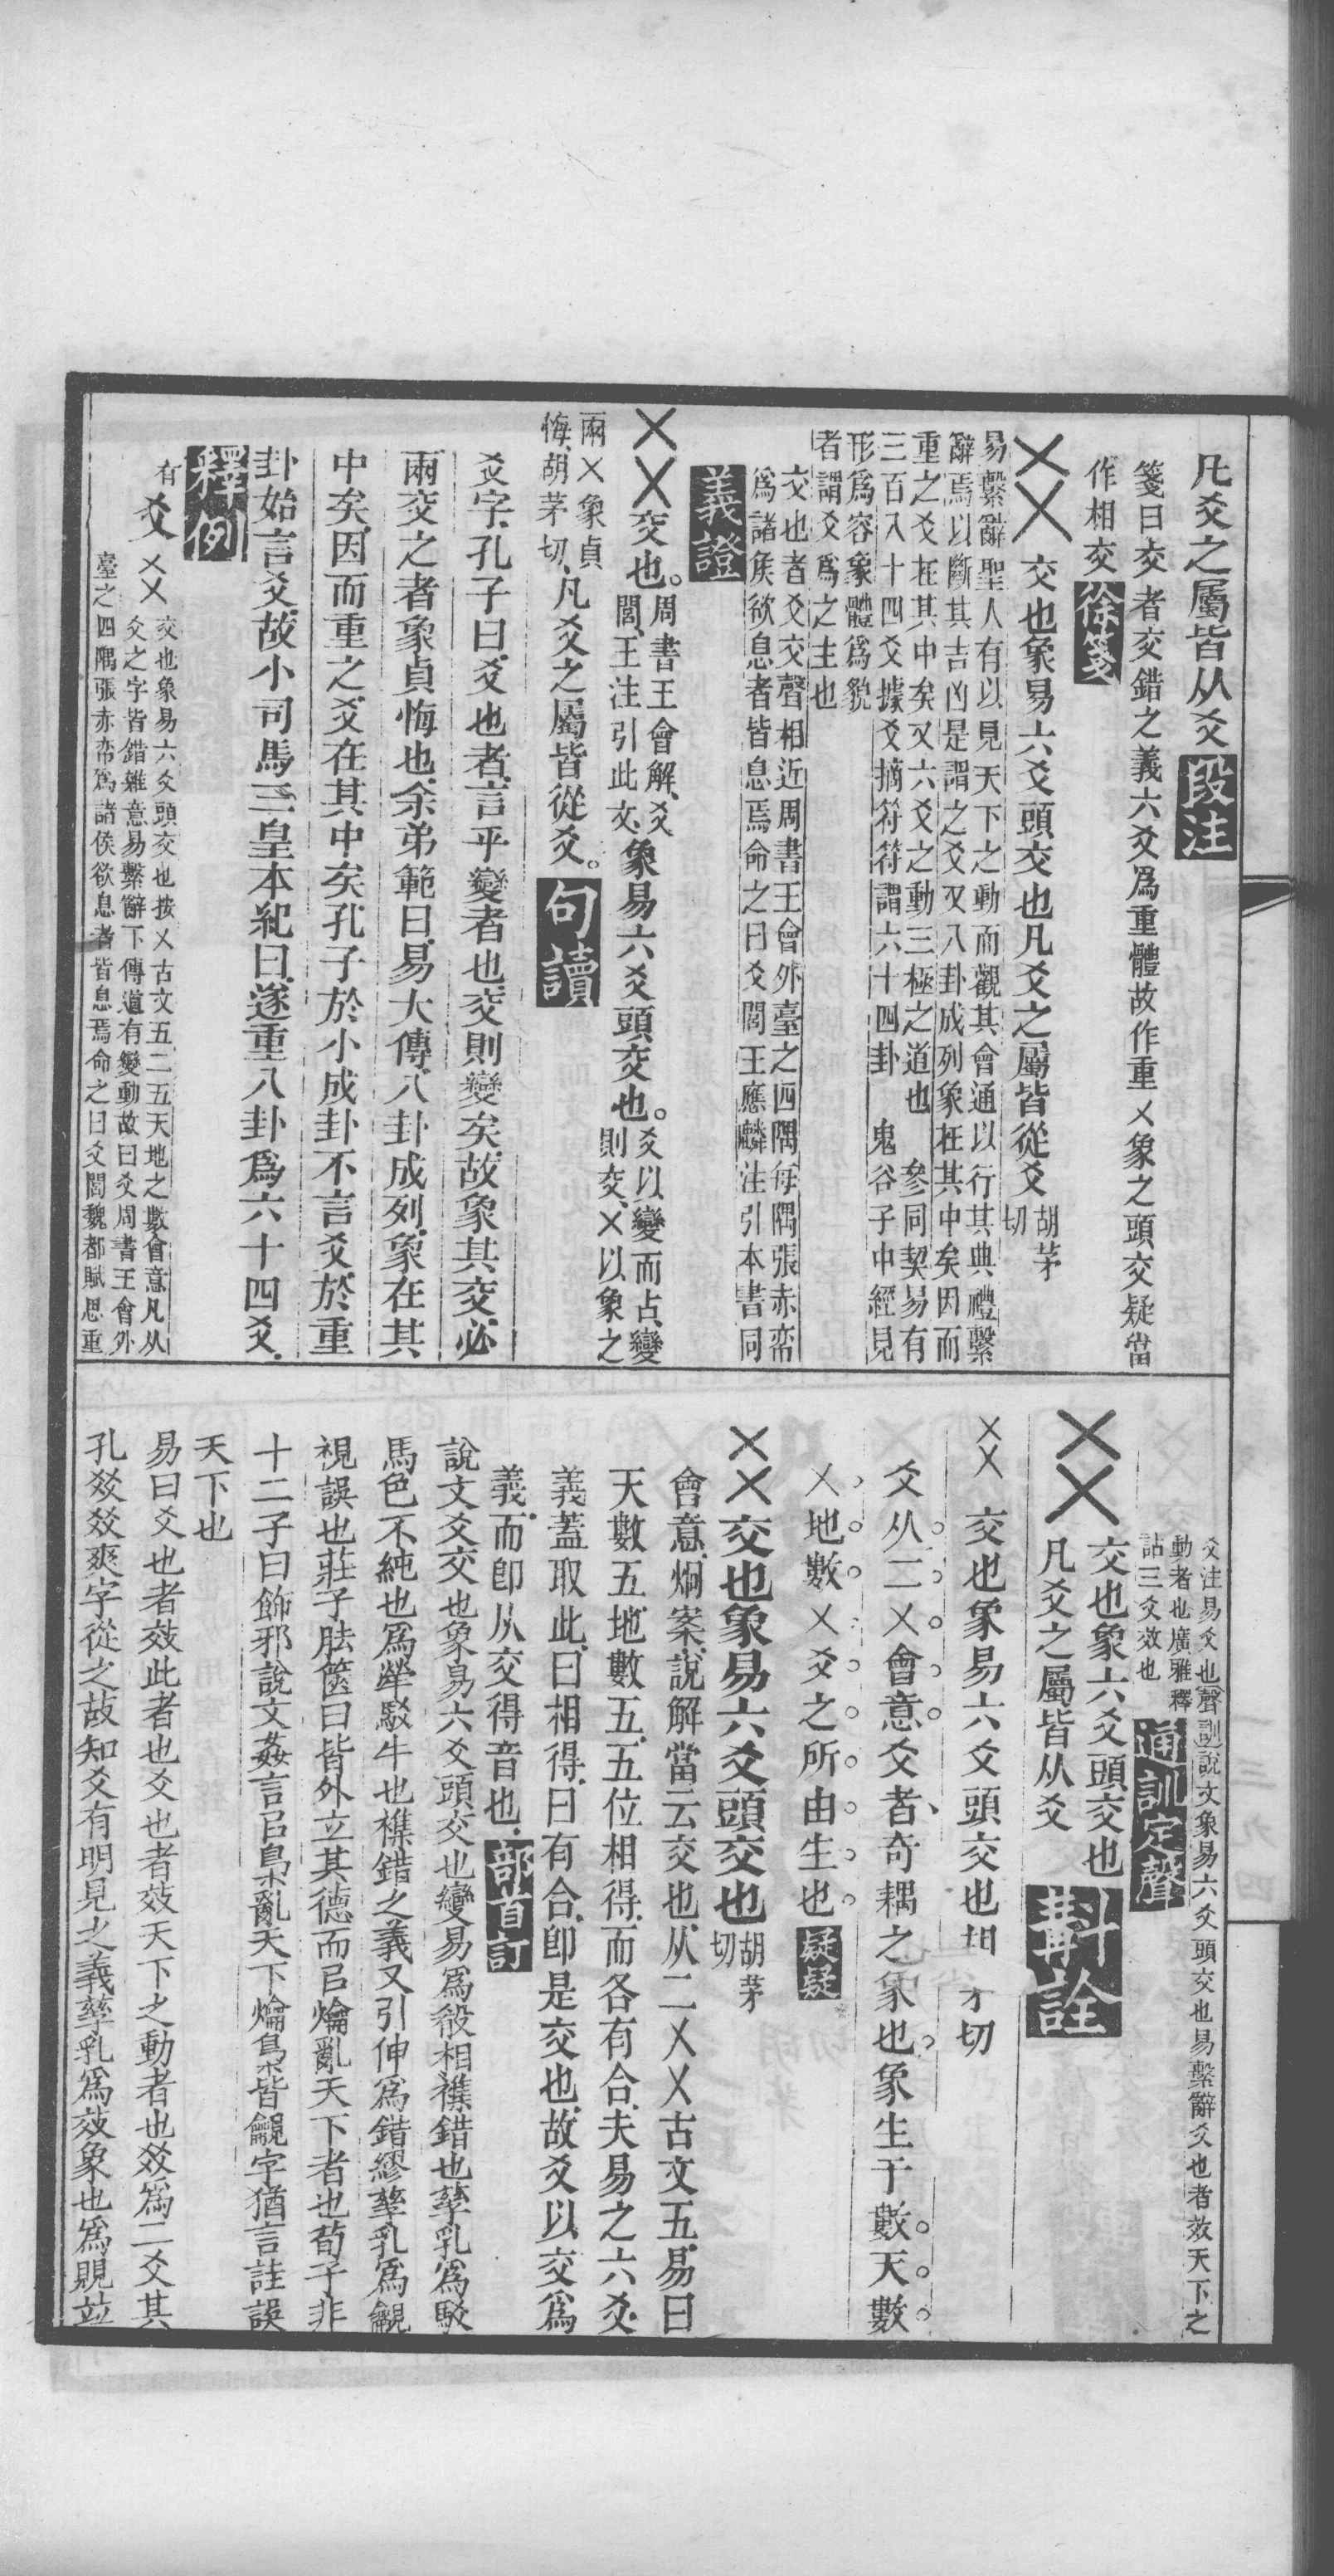 凡爻之屬皆从爻 段注
箋曰交者交錯之義六爻爲重體故作重㐅象之頭交疑當
作相交 徐箋
爻 交也象易六爻頭交也凡爻之屬皆從爻 胡茅
切
易繫辭聖人有以見天下之動而觀其會通以行其典禮繫
辭焉以斷其吉凶是謂之爻又八卦成列象在其中矣因而
重之爻在其中矣又六爻之動三極之道也 參同契易有
三百八十四爻據爻摘符符謂六十四卦 鬼谷子中經見
形爲容象體爲貌
者謂爻爲之主也
交也者爻交聲相近周書王會外臺之四隅每隅張赤帟
爲諸矦欲息者皆息焉命之曰爻閭王應麟注引本書同
義證
爻交也。周書王會解、爻
閭、王注引此文、
象易六爻頭交也。爻以變而占、變
則交、㐅以象之
兩㐅象貞
悔、胡茅切、
凡爻之屬皆從爻。句讀
爻字、孔子曰、爻也者、言乎變者也、交則變矣、故象其交、必
兩交之者象貞悔也、余弟範曰、易大傳、八卦成列、象在其
中矣、因而重之、爻在其中矣、孔子於小成卦不言爻、於重
卦始言爻、故小司馬三皇本紀曰、遂重八卦爲六十四爻、
釋例
有爻 爻 交也象易六爻頭交也按㐅古文五二五天地之數會意凡从
爻之字皆錯雜意易繫辭下傳道有變動故曰爻周書王會外
臺之四隅張赤帟爲諸侯欲息者皆息焉命之曰爻閭魏都賦思重
爻注易爻也聲訓說文象易六爻頭交也易繫辭爻也者效天下之
動者也廣雅釋
詁三爻效也
通訓定聲
爻 交也象六爻頭交也
凡爻之屬皆从爻
斠詮
爻 交也象易六爻頭交也 切
爻从二㐅會意爻者奇耦之象也象生于數天數
㐅地數㐅爻之所由生也 疑疑
爻交也象易六爻頭交也 胡茅
切
會意、炯案、說解當云交也、从二㐅㐅古文五、易曰
天數五、地數五、五位相得、而各有合、夫易之六爻、
義蓋取此、曰相得、曰有合、卽是交也、故爻以交爲
義、而卽从交得音也、部首訂
說文爻交也象易六爻頭交也變易爲殽相襍錯也孳乳爲駁
馬色不純也爲犖駁牛也襍錯之義又引伸爲錯繆孳乳爲覶
視誤也莊子胠篋曰皆外立其德而㠯爚亂天下者也荀子非
十二子曰飾邪說文姦言㠯梟亂天下爚梟皆覶字猶言詿誤
天下也
易曰爻也者效此者也爻也者效天下之動者也㸚爲二爻其
孔㸚㸚爽字從之故知爻有明見之義孳乳爲效象也爲覞竝